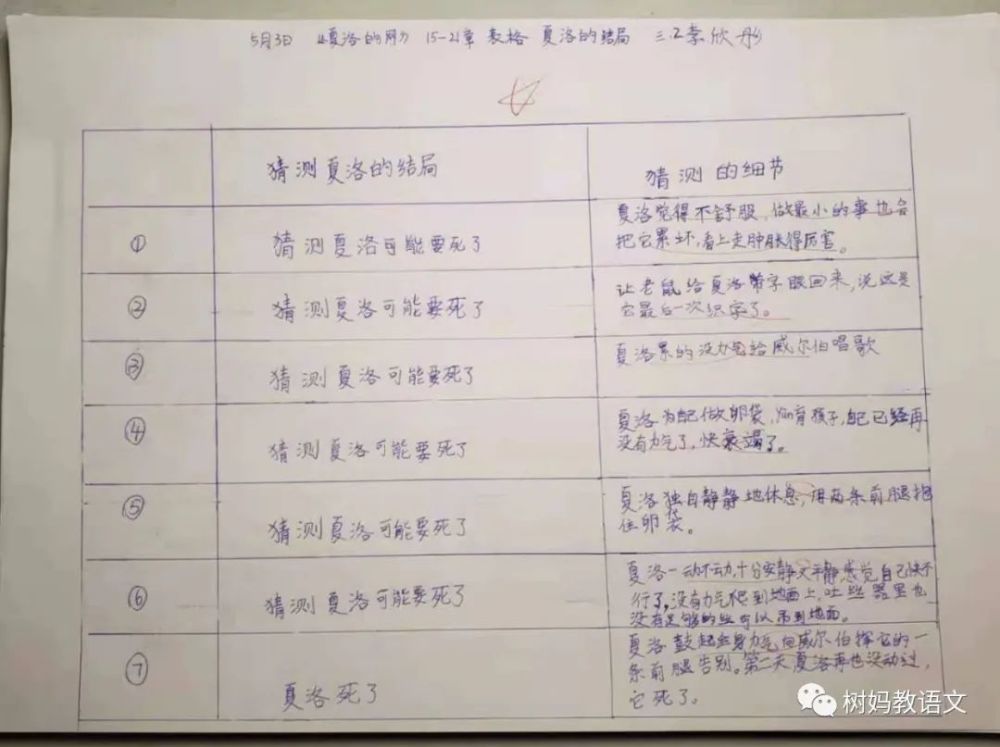 5月3日 《夏洛的网》 15-21章 表格 夏洛的结局 三.2李欣彤
猜测夏洛的结局
猜测的细节
①
猜测夏洛可能要死了
夏洛觉得不舒服，做最小的事也会
把它累坏，看上走肿胀得厉害。
②
猜测夏洛可能要死了
让老鼠给夏洛带字眼回来，说这是
它最后一次织字了。
③
猜测夏洛可能要死了
夏洛累的没力气给威尔伯唱歌
④
猜测夏洛可能要死了
夏洛为自己做卵袋，孕育孩子，自己已经再
没有力气了，快衰竭了。
⑤
猜测夏洛可能要死了
夏洛独自静静地休息，用两条前腿抱
住卵袋。
⑥
猜测夏洛可能要死了
夏洛一动不动，十分安静又平静，感觉自己快不
行了，没有力气爬到地面上，吐丝器里也
没有足够的丝可以吊到地面。
⑦
夏洛死了
夏洛鼓起全身力气向威尔伯挥它的一
条前腿告别。第二天夏洛再也没动过，
它死了。
树妈教语文